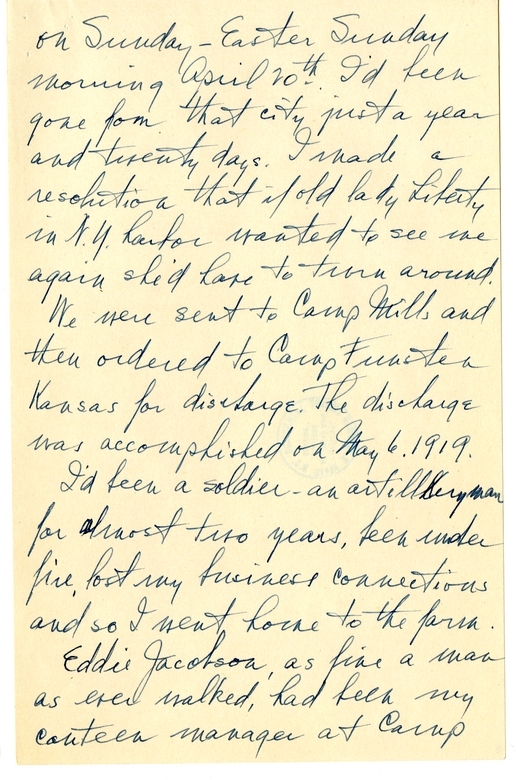 on Sunday - Easter Sunday
morning April 20th. I'd been
gone from that city just a year
and twenty days. I made a
resolution that if old lady Liberty
in N.Y. harbor wanted to see me
again she'd have to turn around.
We were sent to Camp Mills and
then ordered to Camp Funsten
Kansas for discharge. The discharge
was accomplished on May 6, 1919.
I'd been a soldier - an artilleryman
for almost two years, been under
fire, lost my business connections
and so I went home to the farm.
Eddie Jacobson, as fine a man
as ever walked, had been my
canteen manager at Camp